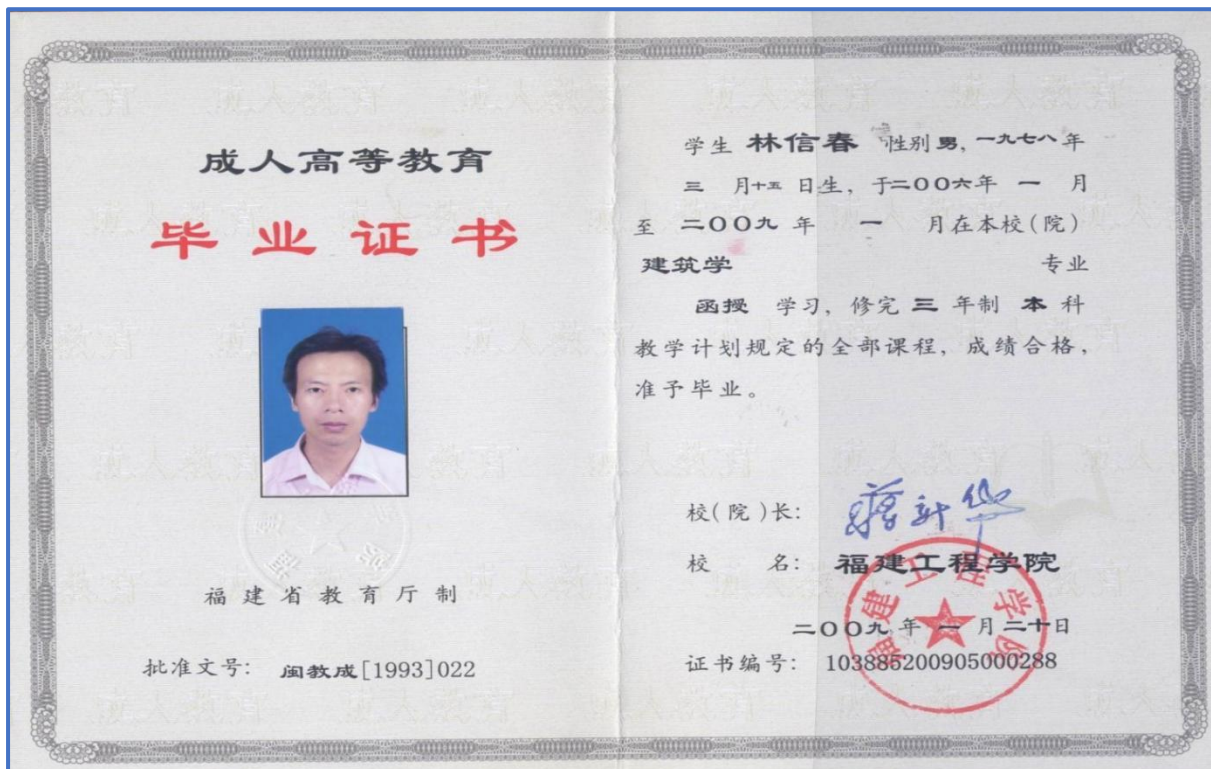 成人高等教育
毕业证书
福建省教育厅制
批准文号: 闽教成[1993]022
学生 林信春 性别 男, 一九七八年
三 月十五 日生, 于二00六年 一 月
至 二00九 年 一 月在本校(院)
建筑学 专业
函授 学习, 修完 三 年制 本 科
教学计划规定的全部课程, 成绩合格,
准予毕业。
校(院)长: 蒋新华
校 名: 福建工程学院
福建工程学院
二00九 年 一 月 二十日
证书编号: 103885200905000288